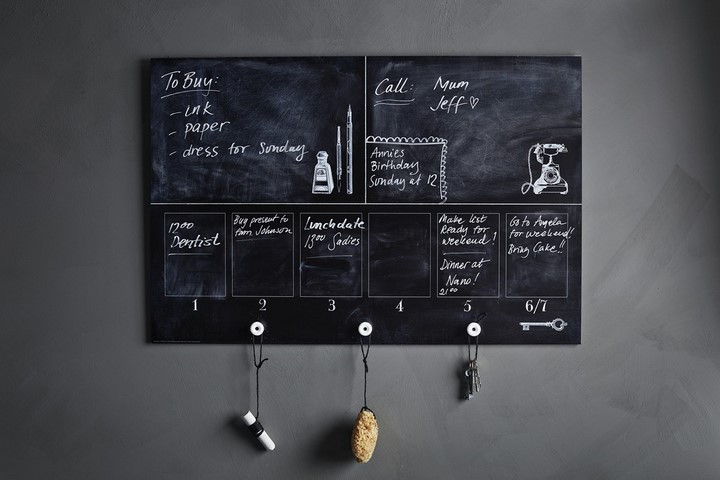 To Buy:
- ink
- paper
- dress for Sunday
Call: Mum
Jeff ♡
Annies
Birthday
Sunday at 12
1700
Dentist
Buy present to
Johnson
Lunchdate
1300 Sadies
Make list
Ready for
weekend!
Dinner at
Nano!
2100
Go to Angela
for weekend!
Bring Cake!!
1
2
3
4
5
6/7